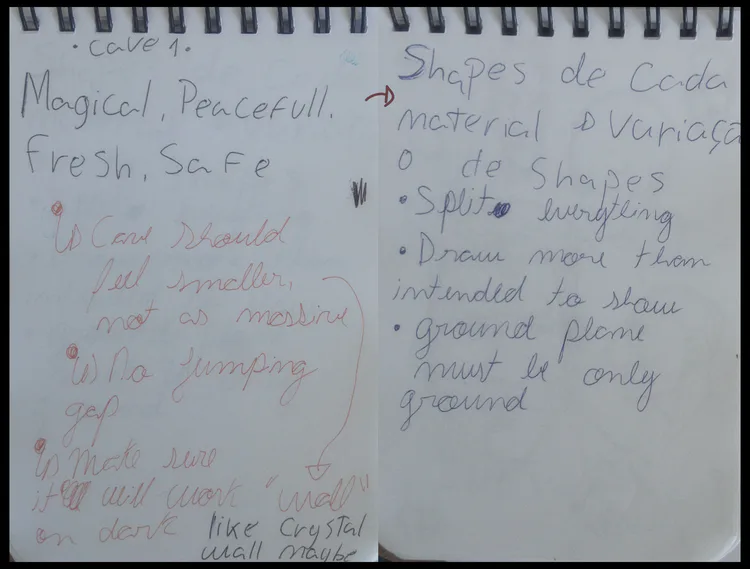 • Cave 1.
Magical, Peacefull.
Fresh, Safe
• ↳ Cave should
feel smaller,
not as massive
• ↳ No jumping
gap
• ↳ Make sure
it will work "wall"
on dark like Crystal
wall maybe
→ Shapes de Cada
material → Variaçã
o de Shapes
• Split everything
• Draw more than
intended to show
• ground plane
must be only
ground